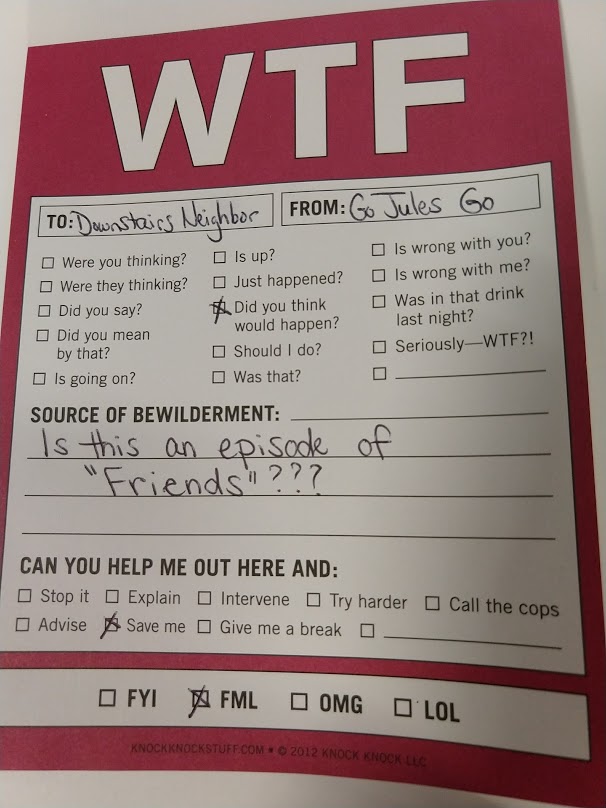 WTF
TO: Downstairs Neighbor
FROM: Go Jules Go
Were you thinking?
Were they thinking?
Did you say?
Did you mean
by that?
Is going on?
Is up?
Just happened?
Did you think
would happen?
Should I do?
Was that?
Is wrong with you?
Is wrong with me?
Was in that drink
last night?
Seriously—WTF?!
SOURCE OF BEWILDERMENT:
Is this an episode of
"Friends"???
CAN YOU HELP ME OUT HERE AND:
Stop it Explain Intervene Try harder Call the cops
Advise Save me Give me a break
FYI FML OMG LOL
KNOCKKNOCKSTUFF.COM • © 2012 KNOCK KNOCK LLC